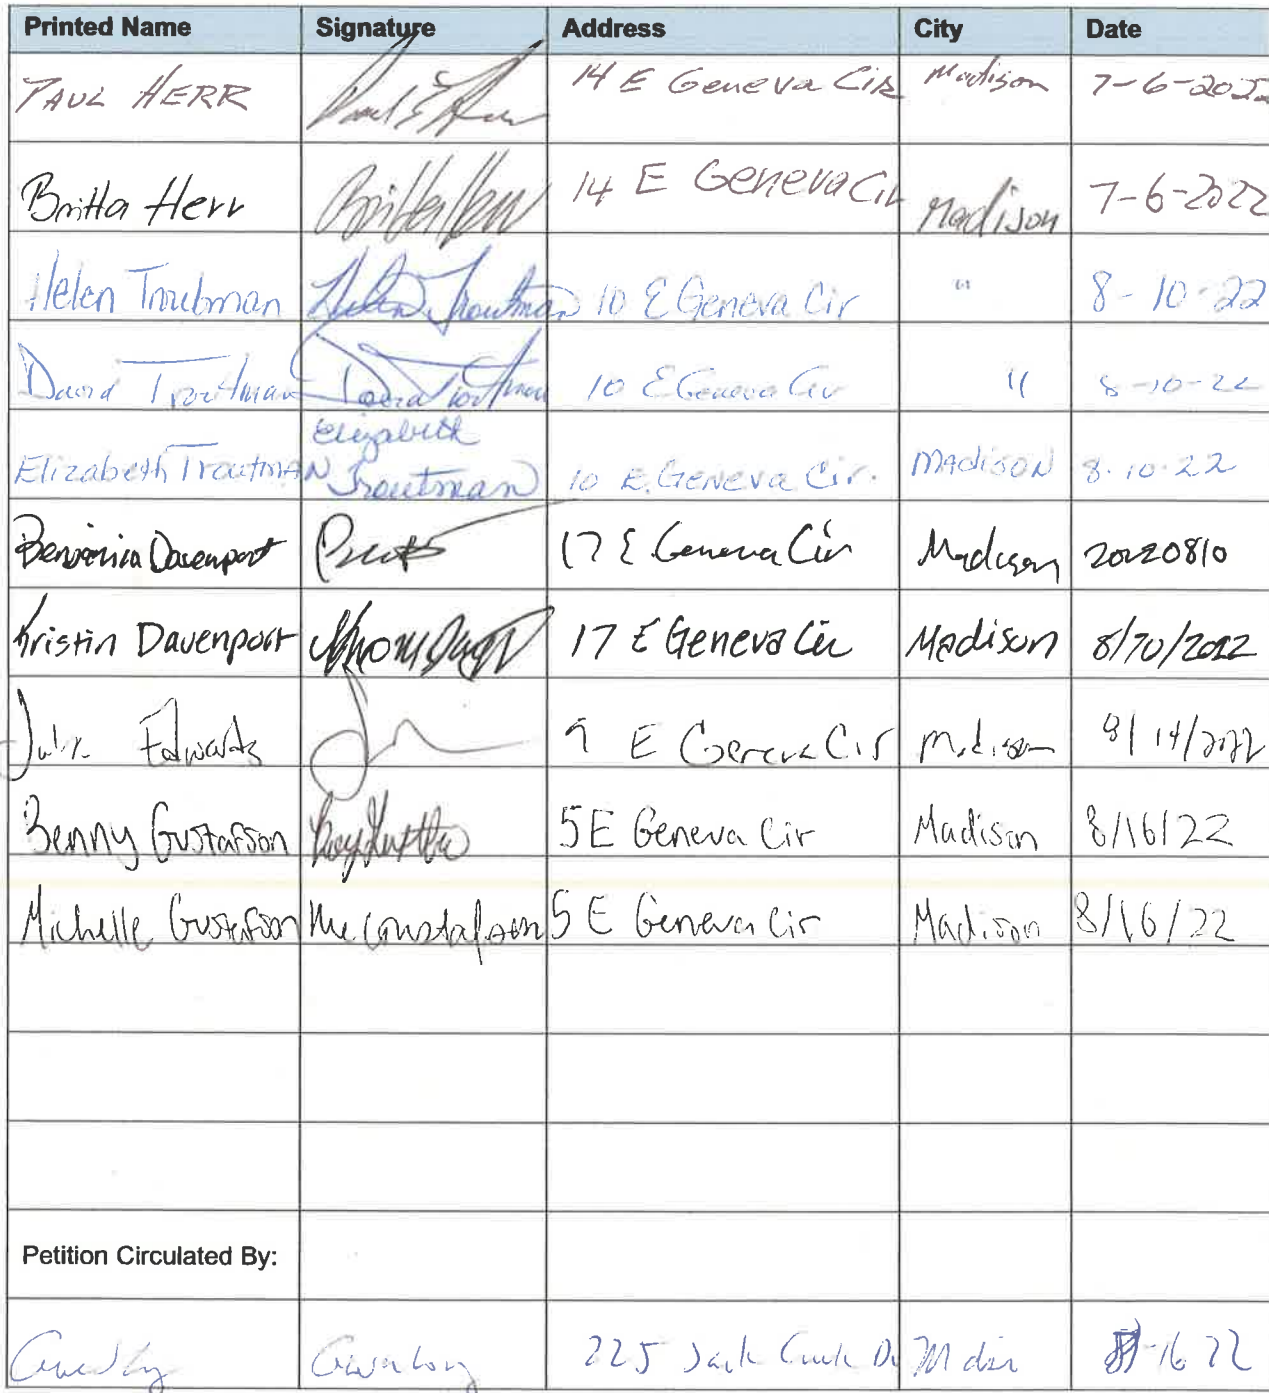 Printed Name Signature Address City Date
PAUL HERR Paul E Herr 14 E Geneva Cir Madison 7-6-2022
Britta Herr Britta Herr 14 E Geneva Cir Madison 7-6-2022
Helen Troutman Helen Troutman 10 E Geneva Cir " 8-10-22
David Troutman David Troutman 10 E Geneva Cir " 8-10-22
Elizabeth
Elizabeth Troutman Troutman 10 E. Geneva Cir. Madison 8.10.22
Davenport 17 E Geneva Cir Madison 20220810
Kristin Davenport 17 E Geneva Cir Madison 8/10/2022
Edwards 9 E Geneva Cir Madison 8/14/2022
Benny Gustafson 5 E Geneva Cir Madison 8/16/22
Michelle Gustafson Gustafson 5 E Geneva Cir Madison 8/16/22
Petition Circulated By:
225 Dr 16 22